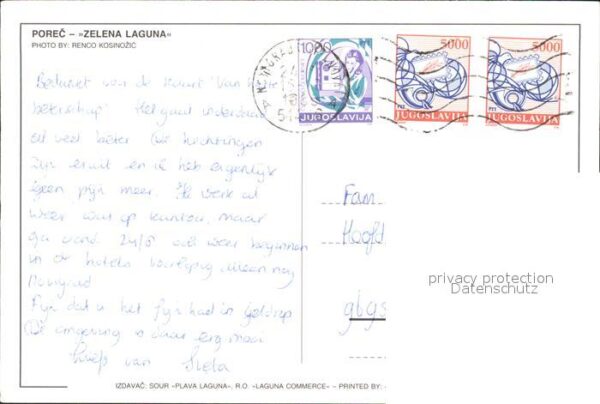 POREČ – »ZELENA LAGUNA«
PHOTO BY: RENCO KOSINOŽIC
1000
JUGOSLAVIJA
5000
PTT
JUGOSLAVIJA
5000
PTT
JUGOSLAVIJA
Bedankt van de kaart 'van harte
beterschap' Het gaat inderdaad
al veel beter De hechtingen
zijn eruit en ik heb eigenlijk
geen pijn meer. Ik werk al
weer wat op kantoor, maar
ga vand. 24/5 ook weer beginnen
in de hotels voorlopig alleen nog
Novigrad
Fijn dat u het fijn had in
De omgeving is daar erg mooi
Liefs van
Fam
Hoofd
privacy protection
Datenschutz
IZDAVAČ: SOUR »PLAVA LAGUNA«, R.O. »LAGUNA COMMERCE« – PRINTED BY: